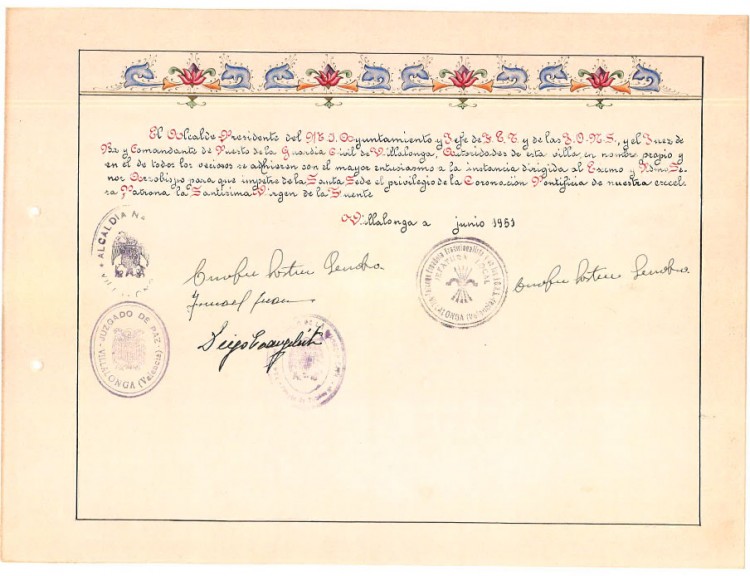 El Alcalde-Presidente del M. I. Ayuntamiento y Jefe de F. E. T. y de las J. O. N. S., y el Juez de
Paz y Comandante de Puesto de la Guardia Civil de Villalonga, Autoridades de esta villa, en nombre propio y
en el de todos los vecinos se adhieren con el mayor entusiasmo a la instancia dirigida al Excmo y Rdmo Se-
ñor Arzobispo para que impetre de la Santa Sede el privilegio de la Coronación Pontificia de nuestra excelsa
Patrona la Santísima Virgen de la Fuente
Villalonga a junio 1951
ALCALDIA NA
JEFATURA LOCAL
VILLALONGA (Valencia)
Ismael Juan
JUZGADO DE PAZ
VILLALONGA (Valencia)
Diego Evangelista